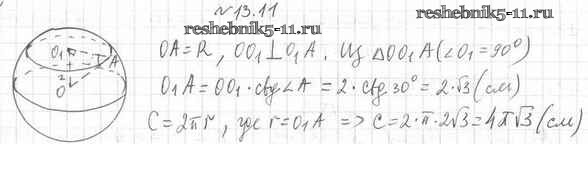 №13.11
reshebnik5-11.ru reshebnik5-11.ru
OA=R, OO₁⊥O₁A. Из △OO₁A (∠O₁=90°)
O₁A=OO₁·ctg∠A=2·ctg30°=2·√3 (см)
C=2πr, где r=O₁A => C=2·π·2√3=4π√3 (см)
O₁ A
2
O